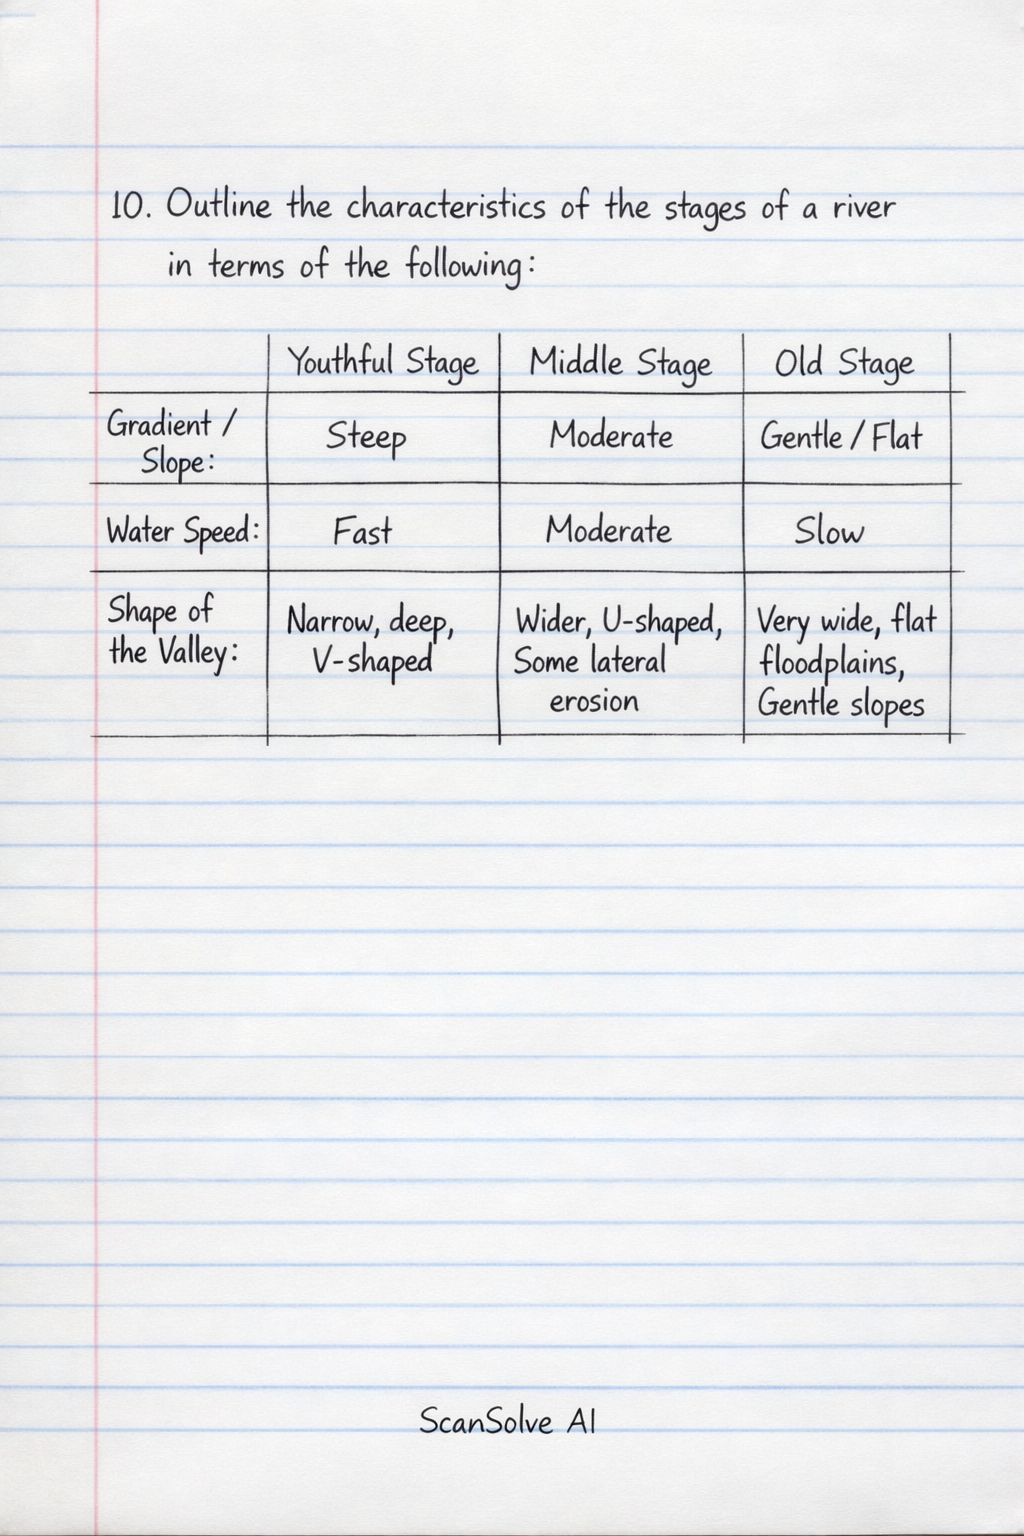 10. Outline the characteristics of the stages of a river
in terms of the following:
Youthful Stage Middle Stage Old Stage
Gradient / Slope: Steep Moderate Gentle / Flat
Water Speed: Fast Moderate Slow
Shape of the Valley: Narrow, deep, V-shaped Wider, U-shaped, Some lateral erosion Very wide, flat floodplains, Gentle slopes
ScanSolve AI